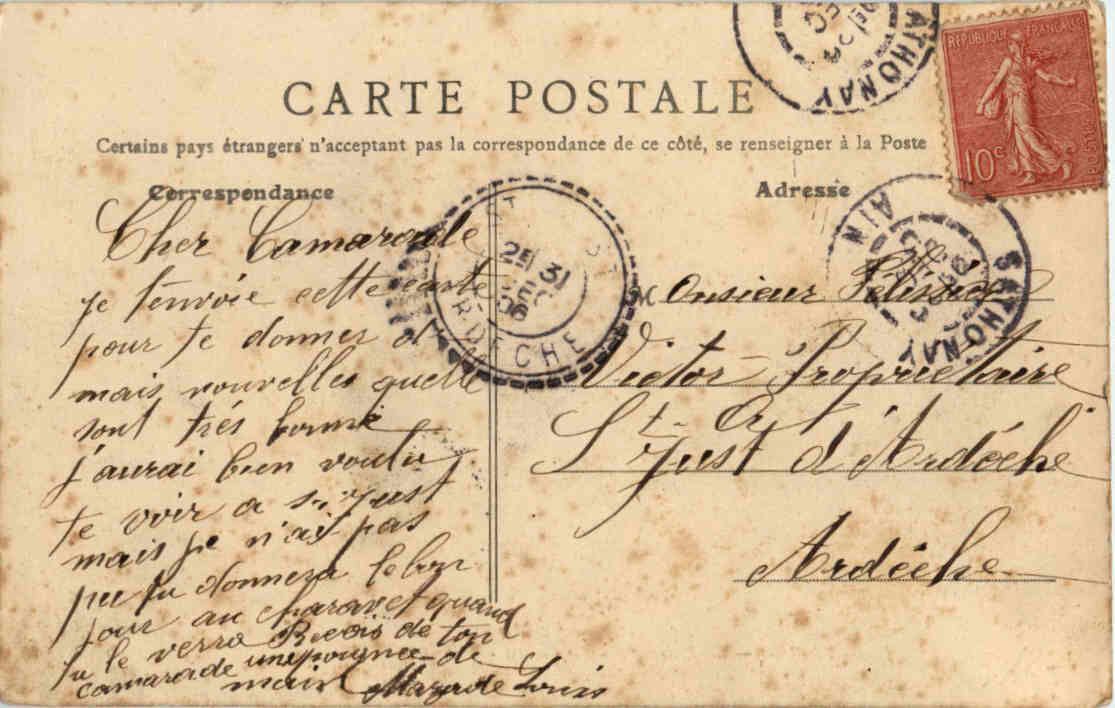 CARTE POSTALE
Certains pays étrangers n'acceptant pas la correspondance de ce côté, se renseigner à la Poste
Correspondance
Adresse
REPUBLIQUE FRANÇAISE
10c
SATHONAY
AIN
SATHONAY
25 31
ARDECHE
Cher Camarade
je t'envoie cette carte
pour te donner de
mais nouvelles quelle
sont trés bonne
j'aurai bien voulu
te voir a St Just
mais je n'ai pas
pu tu donnera le bon
jour au quand
tu le verra Recois de ton
camarade une poignee de
main Louis
Monsieur
Victor Propriétaire
St Just d'Ardéche
Ardéche